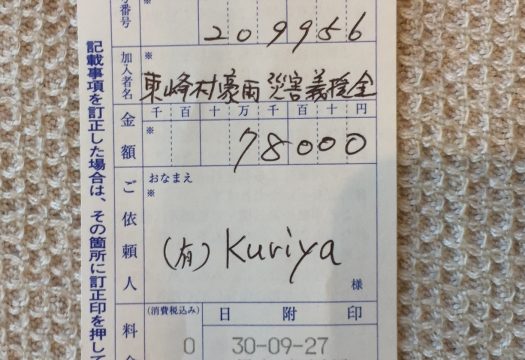 番号
209956
加入者名
※
東峰村豪雨災害義援金
金額
千 百 十 万 千 百 十 円
※
78000
ご依頼人
おなまえ
※
(有) Kuriya
様
料
(消費税込み)
0
日附印
30-09-27
記載事項を訂正した場合は、その箇所に訂正印を押して